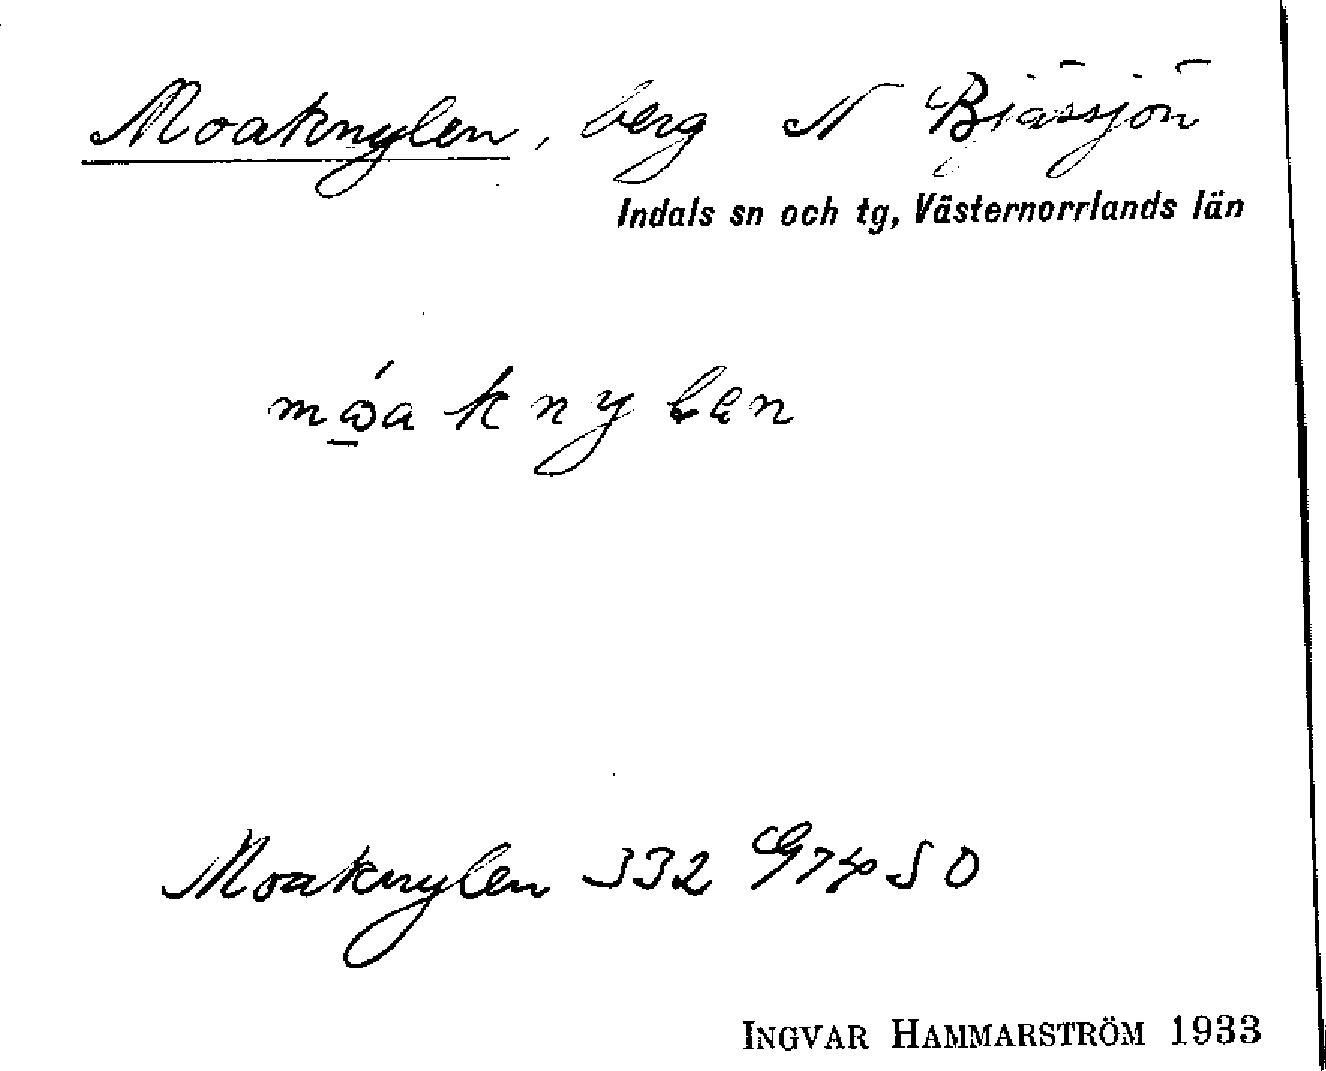 Moaknylen, berg N Bjässjön
Indals sn och tg, Västernorrlands län
Moaknylen 332
INGVAR HAMMARSTRÖM 1933